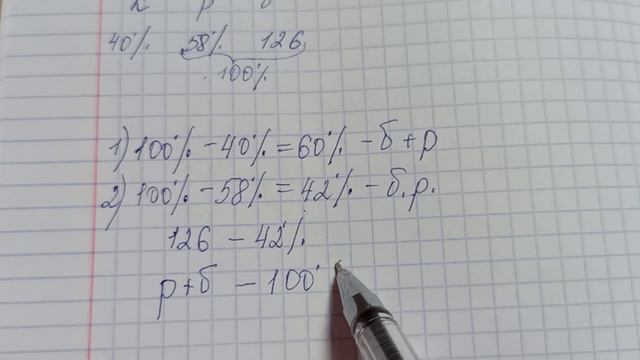 40% 58% 126
100%
1) 100% - 40% = 60% - б + р
2) 100% - 58% = 42% - б.р.
126 - 42%
р+б - 100